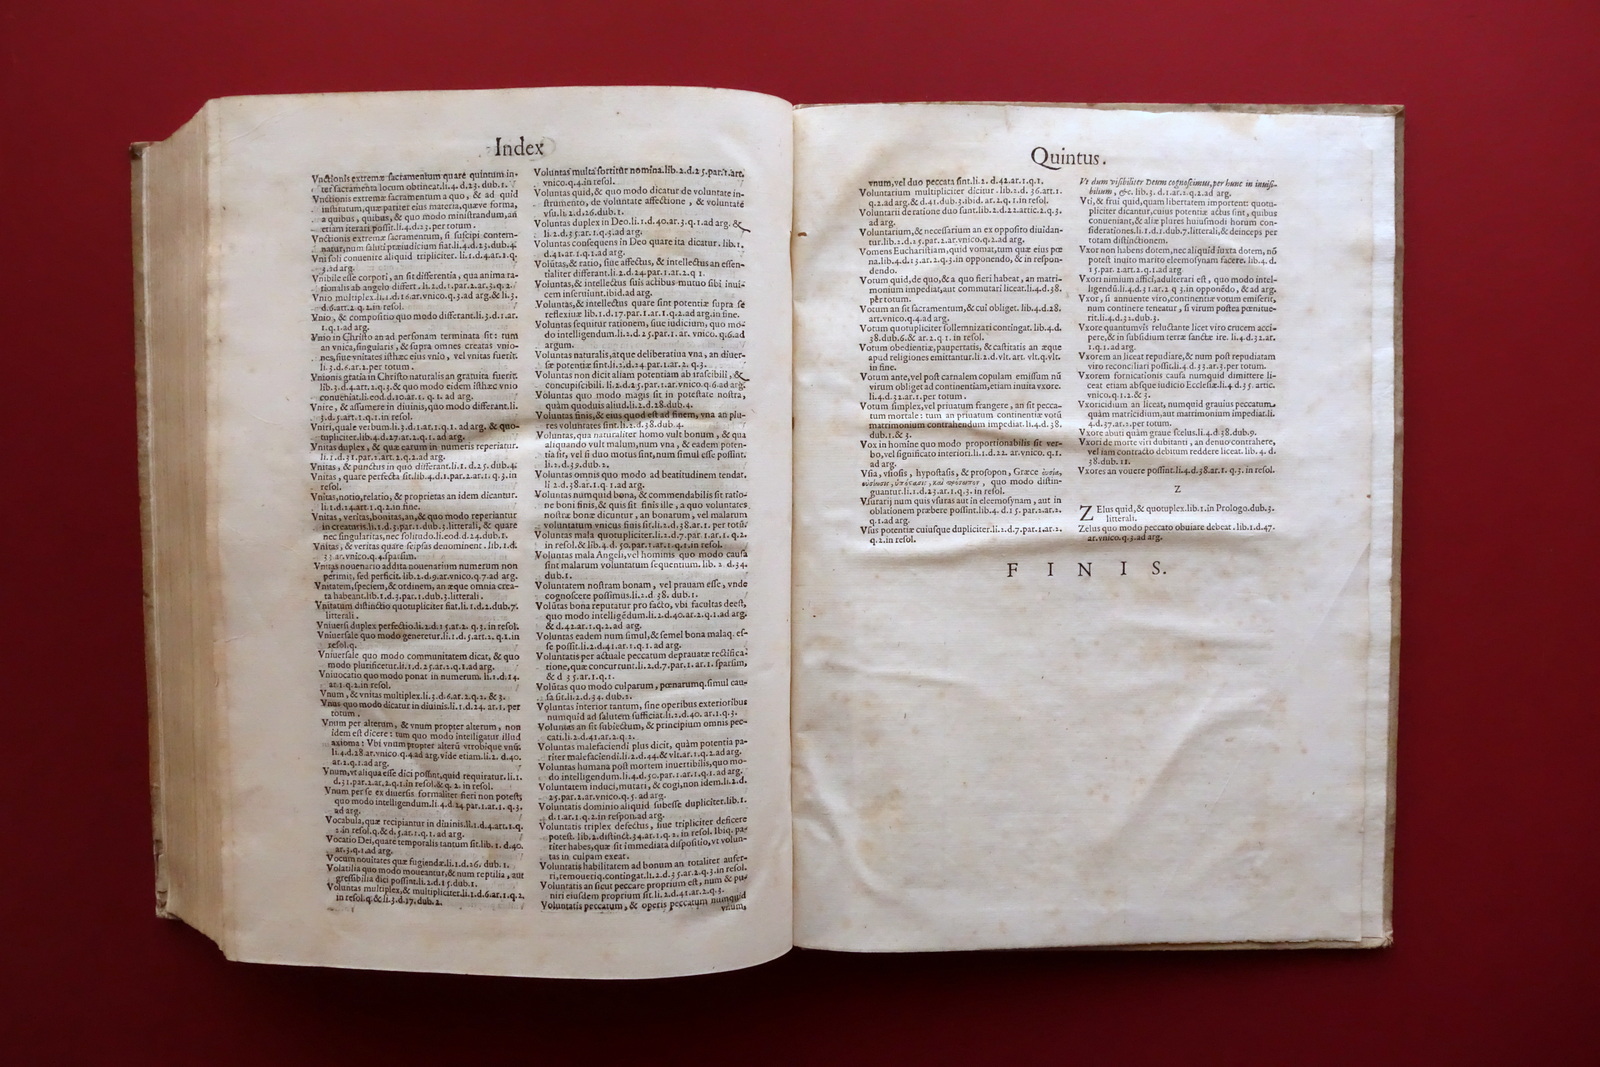 Index
Vnctionis extremæ sacramentum quare quintum in-
ter sacramenta locum obtineat.li.4.d.23.dub.1.
Vnctionis extremæ sacramentum a quo, & ad quid
institutum,quæ pariter eius materia,quæve forma,
a quibus, quibus,& quo modo ministrandum,an
etiam iterari possit.li.4.d.23.per totum.
Vnctionis extremæ sacramentum, si suscipi contem-
natur,num saluti præiudicium fiat.li.4.d.23.dub.4.
Vni soli conuenire aliquid tripliciter. li.1.d.4.ar.1.q.
3.ad arg.
Vnibile esse corpori, an sit differentia, qua anima ra-
tionalis ab angelo differt. li.2.d.1.par.2.ar.3.q.2.
Vnio multiplex.li.2.d.16.ar.vnico.q.3.ad arg.& li.3.
d.6.art.2.q. 2.in resol.
Vnio, & compositio quo modo differant.li.3.d.1.ar.
1.q.1.ad arg.
Vnio in Christo an ad personam terminata sit: tum
an vnica,singularis, & supra omnes creatas vnio-
nes,siue vnitates isthæc eius vnio, vel vnitas fuerit.
li.3.d.6.ar.2.per totum.
Vnionis gratia in Christo naturalis an gratuita fuerit.
lib.3.d.4.art.2.q.3.& quo modo eidem isthæc vnio
conueniat.li.eod.d.10.ar.1. q. 1. ad arg.
Vnire, & assumere in diuinis,quo modo differant.li.
3.d.5.art.1.q.1. in resol.
Vniri,quale verbum.li.3.d.1.ar.1.q.1. ad arg. & quo-
tupliciter.lib.4.d.27.ar.2.q.1. ad arg.
Vnitas duplex, & quæ earum in numeris reperiatur.
li.1.d.31.par.2.art. 2.q.2.ad arg.
Vnitas, & punctus in quo differant.li.1.d.25. dub.4.
Vnitas, quare perfecta sit.lib.4.d.1.par.2.ar. 1. q.3. in
resol.
Vnitas,notio,relatio, & proprietas an idem dicantur.
li.1.d.24.art.1.q.2.in fine.
Vnitas, veritas,bonitas,an,& quo modo reperiantur
in creaturis.li.1.d.3.par.1.dub.3.litterali, & quare
nec singularitas,nec solitudo.li.eod.d.24.dub.1.
Vnitas, & veritas quare seipsas denominent. lib.1.d.
ar.vnico.q.4.sparsim.
Vnitas nouenario addita nouenarium numerum non
perimit, sed perficit. lib.2.d.9.ar.vnico.q.7.ad arg.
Vnitatem,speciem,& ordinem, an æque omnia crea-
ta habeant.lib.1.d.3.par.1.dub.3.litterali.
Vnitatum distinctio quotupliciter fiat.li.1.d.2.dub.7.
litterali.
Vniuersi duplex perfectio.li.2.d.15.ar.2. q. 3. in resol.
Vniuersale quo modo generetur.li.1.d.5.art.2. q.1.in
resol.q.
Vniuersale quo modo communitatem dicat, & quo
modo plurificetur.li.1.d.25.ar.2.q.1.ad arg.
Vniuocatio quo modo ponat in numerum. li.1.d.24.
ar.1.q.2.in resol.
Vnum,& vnitas multiplex.li.3.d.6.ar.2.q.2. & 3.
Vnus quo modo dicatur in diuinis.li.1.d.24. ar.1. per
totum.
Vnum per alterum, & vnum propter alterum, non
idem est dicere: tum quo modo intelligatur illud
axioma: Vbi vnum propter alterū vtrobique vnū.
li.4.d.28.ar.vnico.q.4.ad arg.vide etiam.li.2. d.40.
ar.2.q.1.ad arg.
Vnum,vt aliqua esse dici possint,quid requiratur. li.1.
d.31.par.2.ar.2.q.1.in resol.& q. 2. in resol.
Vnum per se ex diuersis formaliter fieri non potest;
quo modo intelligendum.li 4.d.24.par.1.ar.1. q.3.
ad arg.
Vocabula,quæ recipiantur in diuinis.li.1.d.4.art.1.q.
2.in resol.q.& d.5.ar.1.q.1. ad arg.
Vocatio Dei,quare temporalis tantum sit.lib.1.d.40.
ar.3.q.1.ad arg.
Vocum nouitates quæ fugiendæ.li.1.d.26. dub. 1.
Volatilia quo modo moueantur,& num reptilia, aut
gressibilia dici possint.li.2.d.15.dub.1.
Voluntas multiplex,& multipliciter.li.1.d.6.ar.1.q.2.
in resol.q.& li.3.d.17.dub.2.
Voluntas multa sortitur nomina.lib.2.d.25.par.1.art.
vnico.q.4.in resol.
Voluntas quid,& quo modo dicatur de voluntate in-
strumento, de voluntate affectione, & voluntate
vsu.li.2.d.26.dub.1.
Voluntas duplex in Deo.li.1.d.40.ar.3.q.1.ad arg. &
li 2.d.35.ar.1.q.3.ad arg.
Voluntas consequens in Deo quare ita dicatur. lib.1.
d.41.ar.1.q.1.ad arg.
Volūtas,& ratio, siue affectus, & intellectus an essen-
tialiter differant.li.2.d.24.par.1.ar.2.q 1.
Voluntas,& intellectus suis actibus mutuo sibi inui-
cem inseruiunt.ibid.ad arg.
Voluntas,& intellectus quare sint potentiæ supra se
reflexiuæ lib.1.d.17.par.1.ar.1.q.2.ad arg.in fine.
Voluntas sequitur rationem, siue iudicium, quo mo-
do intelligendum.li.2.d.25.par.1.ar. vnico. q.6.ad
argum.
Voluntas naturalis,atque deliberatiua vna, an diuer-
sæ potentiæ sint.li.2.d.24.par.1.ar.2. q.3.
Voluntas non dicit aliam potentiam ab irascibili, &
concupiscibili. li.2.d.25.par.1.ar.vnico.q.6.ad arg.
Voluntas quo modo magis sit in potestate nostra,
quàm quoduis aliud.li.2.d.28.dub.4.
Voluntas finis,& eius quod est ad finem, vna an plu-
res voluntates sint.li.2.d.38.dub.4.
Voluntas,qua naturaliter homo vult bonum, & qua
aliquando vult malum,num vna, & eadem poten-
tia sit, vel si duo motus sint,num simul esse possint.
li.2.d.39.dub.2.
Voluntas omnis quo modo ad beatitudinem tendat.
li 2.d.38.ar.1.q.2.ad arg.
Voluntas numquid bona, & commendabilis sit ratio-
ne boni finis,& quis sit finis ille, a quo voluntates
nostræ bonæ dicuntur, an bonarum, vel malarum
voluntatum vnicus finis sit.li.2.d.38.ar.1. per totū.
Voluntas mala quotupliciter.li.2.d.7.par 1.ar.1. q.2.
in resol.& lib.4.d.50.par.1.ar.1.q.1.in resol.
Voluntas mala Angeli,vel hominis quo modo causa
sint malarum voluntatum sequentium. lib. 2. d.34.
dub.1.
Voluntatem nostram bonam, vel prauam esse, vnde
cognoscere possimus.li.2.d 38. dub.1.
Volūtas bona reputatur pro facto, vbi facultas deest,
quo modo intelligēdum.li.2.d.40.ar.2.q.1.ad arg.
& d.42.ar.1.q.2. ad arg.
Voluntas eadem num simul,& semel bona malaq. es-
se possit.li.2.d.41.ar.1.q.1.ad arg.
Voluntatis per actuale peccatum deprauatæ rectifica-
tione,quæ concurrunt.li.2.d.7.par.1.ar.1. sparsim,
& d 35.ar.1.q.1.
Volūtas quo modo culparum, pœnarumq.simul cau-
sa sit.li.2.d.34. dub.2.
Voluntas interior tantum, sine operibus exterioribus
numquid ad salutem sufficiat.li.2.d.40. ar.1.q.3.
Voluntas an sit subiectum, & principium omnis pec-
cati.li.2.d.41.ar.2.q.1.
Voluntas malefaciendi plus dicit, quàm potentia pa-
riter malefaciendi.li.2.d.44.& vlt.ar.1.q.2.ad arg.
Voluntas humana post mortem inuertibilis,quo mo-
do intelligendum.li.4.d.50.par.1.ar.1.q.1. ad arg.
Voluntatem induci,mutari, & cogi,non idem.li.2.d.
25.par.2.ar.vnico.q.5. ad arg.
Voluntatis dominio aliquid subesse dupliciter.lib.1.
d.1.ar.1.q.2. in respon.ad arg.
Voluntatis triplex defectus, siue tripliciter deficere
potest. lib.2.distinct.34.ar.1.q.2. in resol. Ibiq. pa-
riter habes,quæ sit immediata dispositio,vt volun-
tas in culpam exeat.
Voluntatis habilitatem ad bonum an totaliter aufer-
ri,remoueriq.contingat.li.2.d.35.ar.2.q.3.in resol.
Voluntatis an sicut peccare proprium est, num & pu-
niri eiusdem proprium sit.li.2.d.41.ar.2.q.3.
Voluntatis peccatum, & operis peccatum numquid
vnum,
Quintus.
vnum,vel duo peccata sint.li.2. d.42.ar.1.q.1.
Voluntarium multipliciter dicitur. lib.2.d. 36.art.1.
q.2.ad arg.& d.41.dub.3.ibid. ar.2.q.1.in resol.
Voluntarii de ratione duo sunt.lib.2.d.22.artic.2.q.3.
ad arg.
Voluntarium,& necessarium an ex opposito diuidan-
tur.lib.2.d.25.par.2.ar.vnico.q.2.ad arg.
Vomens Eucharistiam,quid vomat,tum quæ eius pœ
na.lib.4.d.13.ar.2.q.3.in opponendo, & in respon-
dendo.
Votum quid,de quo,& a quo fieri habeat, an matri-
monium impediat,aut commutari liceat.li.4.d.38.
per totum.
Votum an sit sacramentum,& cui obliget. lib.4.d.28.
art.vnico.q.4.ad arg.
Votum quotupliciter sollemnizari contingat. lib.4.d.
38.dub.6.& ar.2.q.1. in resol.
Votum obedientiæ, paupertatis, & castitatis an æque
apud religiones emittantur.li.2.d.vlt. art. vlt.q.vlt.
in fine.
Votum ante,vel post carnalem copulam emissum nū
virum obliget ad continentiam,etiam inuita vxore.
li.4.d.32.ar.1. per totum.
Votum simplex,vel priuatum frangere, an sit pecca-
tum mortale: tum an priuatum continentiæ votū
matrimonium contrahendum impediat. li.4.d.38.
dub.1.& 3.
Vox in homine quo modo proportionabilis sit ver-
bo,vel significato interiori.li.1.d.22. ar.vnico.q.1.
ad arg.
Vsia, vsiosis, hypostasis, & prosopon, Græce οὐσία,
οὐσίωσις, ὑπόςασις, καὶ πρόσωπον, quo modo distin-
guantur.li.1.d.23.ar.1.q.3. in resol.
Vsurarij num quis vsuras aut in eleemosynam, aut in
oblationem præbere possint.lib.4. d.15. par.2.ar.2.
q.1.ad arg.
Vsus potentiæ cuiusque dupliciter.li.2.d.7.par.1.ar.2.
q.2.in resol.
Vt dum visibiliter Deum cognoscimus,per hunc in inuisi-
bilium, &c. lib.3. d.1.ar.2.q.2.ad arg.
Vti,& frui quid,quam libertatem importent: quotu-
pliciter dicantur,cuius potentiæ actus sint, quibus
conueniant,& aliæ plures huiusmodi horum con-
siderationes.li.1.d.1.dub.7.litterali,& deinceps per
totam distinctionem.
Vxor non habens dotem,nec aliquid iuxta dotem, nō
potest inuito marito eleemosynam facere. lib.4. d.
15.par. 2.art.2.q.1.ad arg.
Vxori nimium affici,adulterari est, quo modo intel-
ligendū.li.4.d.31.ar.2.q 3.in opponēdo,& ad arg.
Vxor, si annuente viro,continentiæ votum emiserit,
num continere teneatur, si virum postea pœnitue-
rit.li.4.d.32.dub.3.
Vxore quantumvis reluctante licet viro crucem acci-
pere,& in subsidium terræ sanctæ ire. li.4.d.32.ar.
1.q.1. ad arg.
Vxorem an liceat repudiare,& num post repudiatam
viro reconciliari possit.li.4.d.33.ar.3.per totum.
Vxorem fornicationis causa numquid dimittere li-
ceat etiam absque iudicio Ecclesiæ.li.4.d 35. artic.
vnico.q.2.& 3.
Vxoricidium an liceat, numquid grauius peccatum,
quàm matricidium,aut matrimonium impediat.li.
4.d.37.ar.2.per totum.
Vxore abuti quàm graue scelus.li.4.d.38.dub.9.
Vxori de morte viri dubitanti, an denuo contrahere,
vel iam contracto debitum reddere liceat. lib. 4. d.
38.dub. 11.
Vxores an vouere possint.li.4.d.38.ar.1. q.3. in resol.
Z
ZElus quid,& quotuplex.lib.1.in Prologo.dub.3.
litterali.
Zelus quo modo peccato obuiare debeat. lib.1.d.47.
ar.vnico.q.3.ad arg.
FINIS.